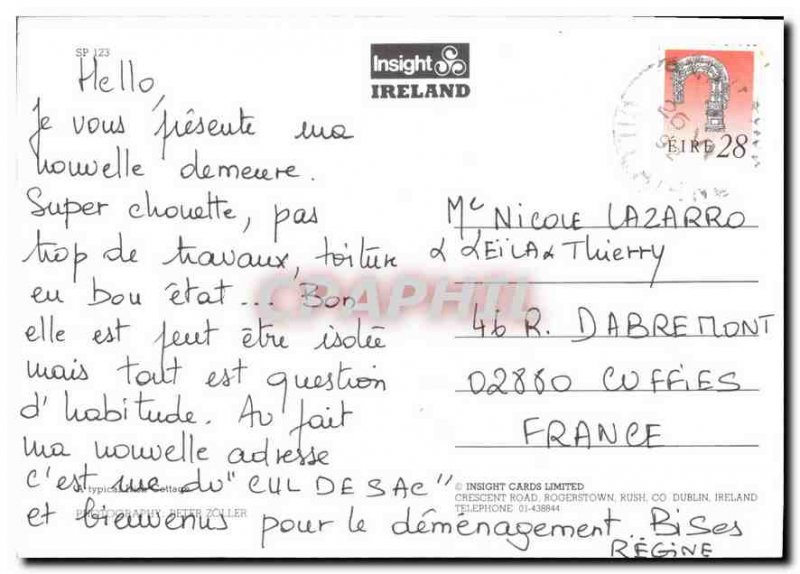 SP 123
Insight
IRELAND
ÉIRE 28
Hello,
Je vous présente ma
nouvelle demeure.
Super chouette, pas
trop de travaux, toiture
en bon état... Bon
elle est peut être isolée
mais tout est question
d'habitude. Au fait
ma nouvelle adresse
c'est rue du "CUL DE SAC"
et bienvenus pour le déménagement.. Bises
RÉGINE
Me NICOLE LAZARRO
& LEÏLA & Thierry
46 R. DABREMONT
02880 CUFFIES
FRANCE
A typical Irish Cottage
PHOTOGRAPHY: PETER ZÖLLER
© INSIGHT CARDS LIMITED
CRESCENT ROAD, ROGERSTOWN, RUSH, CO DUBLIN, IRELAND
TELEPHONE 01-438844
CPAPHIL